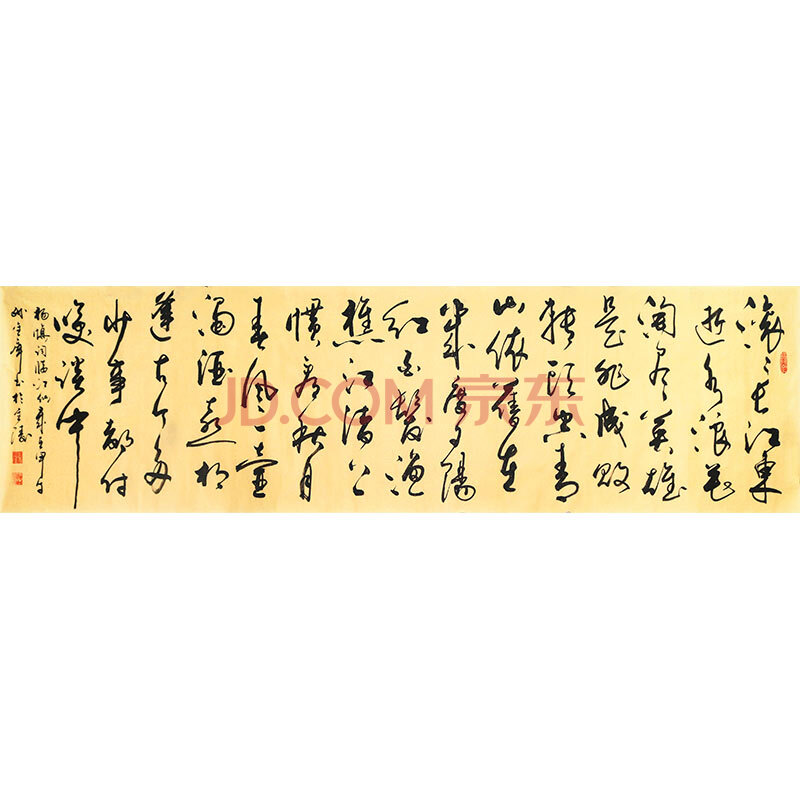 滚〻长江東
逝水浪花
淘尽英雄
是非成败
转頭空青
山依舊在
幾度夕陽
红白髮渔
樵江渚上
惯看秋月
春风一壶
濁酒喜相
逢古今多
少事都付
笑谈中
杨慎词临江仙
JD.COM 京东